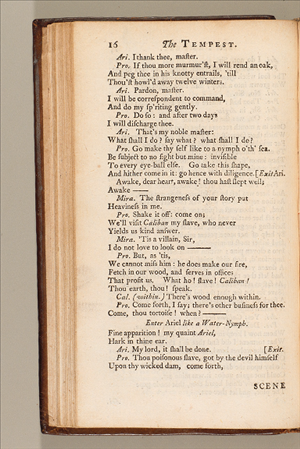 16 The TEMPEST.
Ari. I thank thee, maſter.
Pro. If thou more murmur'ſt, I will rend an oak,
And peg thee in his knotty entrails, 'till
Thou'ſt howl'd away twelve winters.
Ari. Pardon, maſter.
I will be correſpondent to command,
And do my ſp'riting gently.
Pro. Do ſo: and after two days
I will diſcharge thee.
Ari. That's my noble maſter:
What ſhall I do? ſay what? what ſhall I do?
Pro. Go make thy ſelf like to a nymph o'th' ſea.
Be ſubject to no ſight but mine: inviſible
To every eye-ball elſe. Go take this ſhape,
And hither come in it: go hence with diligence. [Exit Ari.
Awake, dear heart, awake! thou haſt ſlept well;
Awake ——
Mira. The ſtrangeneſs of your ſtory put
Heavineſs in me.
Pro. Shake it off: come on;
We'll viſit Caliban my ſlave, who never
Yields us kind anſwer.
Mira. 'Tis a villain, Sir,
I do not love to look on ——
Pro. But, as 'tis,
We cannot miſs him: he does make our fire,
Fetch in our wood, and ſerves in offices
That profit us. What ho! ſlave! Caliban!
Thou earth, thou! ſpeak.
Cal. (within.) There's wood enough within.
Pro. Come forth, I ſay; there's other buſineſs for thee.
Come, thou tortoiſe! when? ——
Enter Ariel like a Water-Nymph.
Fine apparition! my quaint Ariel,
Hark in thine ear.
Ari. My lord, it ſhall be done. [Exit.
Pro. Thou poiſonous ſlave, got by the devil himſelf
Upon thy wicked dam, come forth,
SCENE